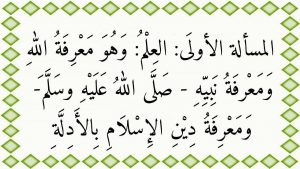 المسألة الأولَى: العِلْمُ: وَهُوَ مَعْرِفَةُ اللهِ
وَمَعْرِفَةُ نَبِيِّهِ - صَلَّى اللهُ عَلَيْهِ وسَلَّمَ-
وَمَعْرِفَةُ دِيْنِ الإِسْلَامِ بِالأَدِلَّةِ